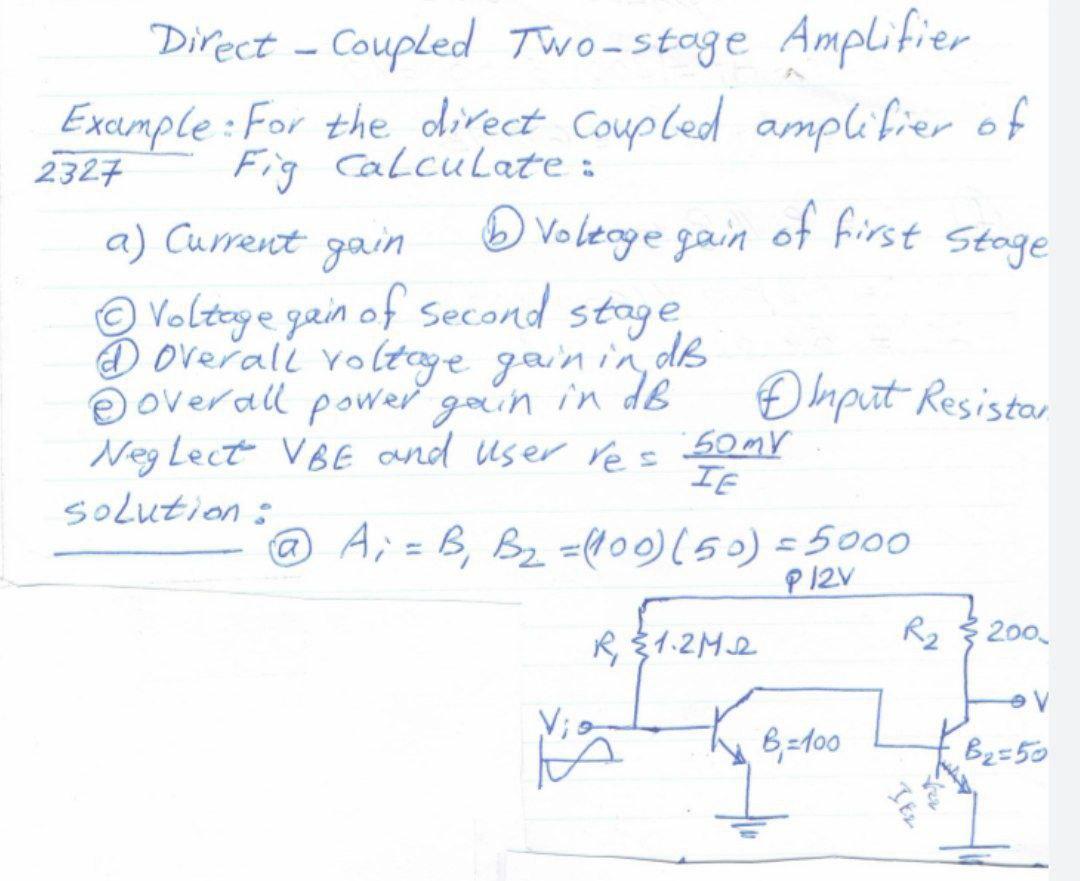 Direct - Coupled Two-stage Amplifier
Example: For the direct Coupled amplifier of
2327 Fig Calculate:
a) Current gain ⓑ Voltage gain of first stage
ⓒ Voltage gain of second stage
ⓓ Overall voltage gain in dB
ⓔ overall power gain in dB ⓕ Input Resistan
Neglect VBE and user re = 50mV
IE
solution:
ⓐ Ai = B1 B2 = (100)(50) = 5000
12V
R1 1.2MΩ R2 200
Vi V
B1=100 B2=50
IE2